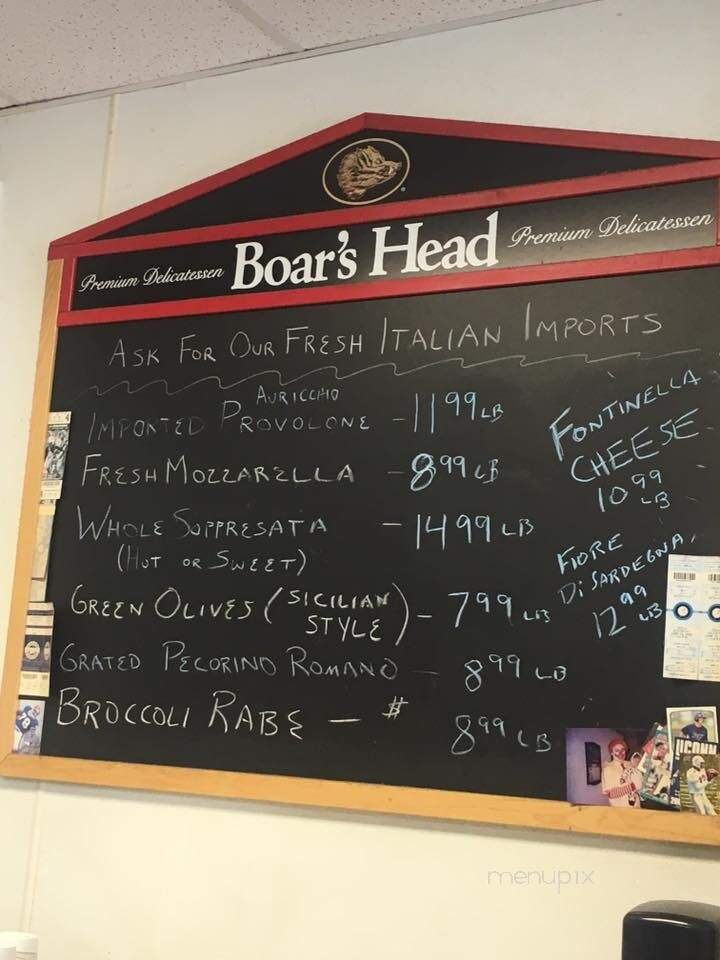 Premium Delicatessen Boar's Head Premium Delicatessen
ASK FOR OUR FRESH ITALIAN IMPORTS
AURICCHIO
IMPORTED PROVOLONE - 11 99 LB
FRESH MOZZARELLA - 8 99 LB
WHOLE SOPPRESATA - 14 99 LB
(HOT OR SWEET)
GREEN OLIVES (SICILIAN STYLE) - 7 99 LB
GRATED PECORINO ROMANO - 8 99 LB
BROCCOLI RABE - # 8 99 LB
FONTINELLA
CHEESE
10 99 LB
FIORE
DI SARDEGNA
12 99 LB
UCONN
menupix